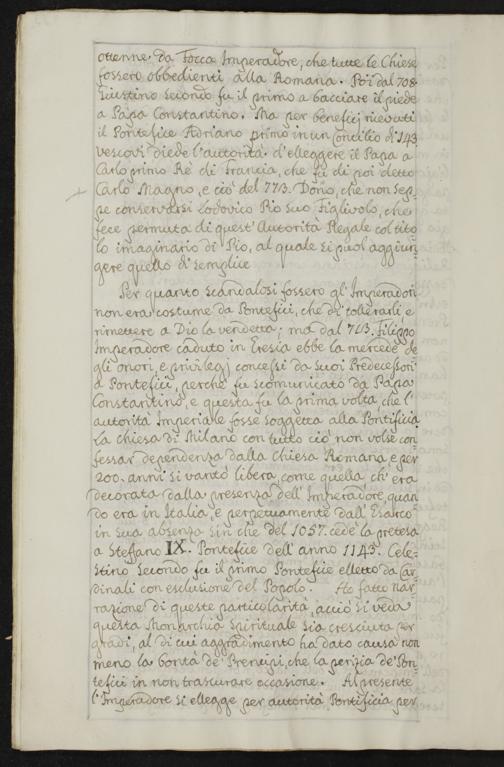 ottenne da Focca Imperadore, che tutte le Chiese
fossero obbedienti alla Romana. Poi dal 708.
Giustino secondo fu il primo a bacciare il piede
a Papa Constantino. Ma per beneficj ricevuti
il Pontefice Adriano primo in un Concilio di 143
vescovi diede l'autorità d'elleggere il Papa a
Carlo primo Rè di Francia, che fù di poi detto
Carlo Magno, e ciò del 773. Dono, che non sep-
pe conservarsi Lodovico Pio suo Figlivolo, che
fece permuta di quest'Autorità Regale col tito
lo imaginario di Pio, al quale si puol aggiun-
gere quello di semplice
Per quanto scandalosi fossero gl'Imperadori
non era costume da Pontefici, che di tollerarli e
rimettere a Dio la vendetta; ma dal 713. Filippo
Imperadore caduto in Eresia ebbe la mercede de
gli onori, e privilegj concessi da suoi Predecessori
a Pontefici, perche fu scomunicato da Papa
Constantino, e questa fu la prima volta, che l'
autorità Imperiale fosse soggetta alla Pontificia
La chiesa di Milano con tutto ciò non volse con
fessar dependenza dalla Chiesa Romana, e per
200. anni si vantò libera, come quella ch'era
decorata dalla presenza dell'Imperadore, quan
do era in Italia, e perpetuamente dall'Esarco
in sua absenza sin che del 1057. cedè la pretesa
a Steffano IX. Pontefice dell'anno 1143. Cele-
stino Secondo fu il primo Pontefice elletto da Car
dinali con esclusione del Popolo. Ho fatto nar
razione di queste particolarità, acciò si veda
questa Monarchia Spirituale sia cresciuta per
gradi, al di cui aggradimento ha dato causa non
meno la bontà de' Prencipi, che la perizia de' Pon
tefici in non trascurare occasione. Al presente
l'Imperadore si ellegge per autorità Pontificia per